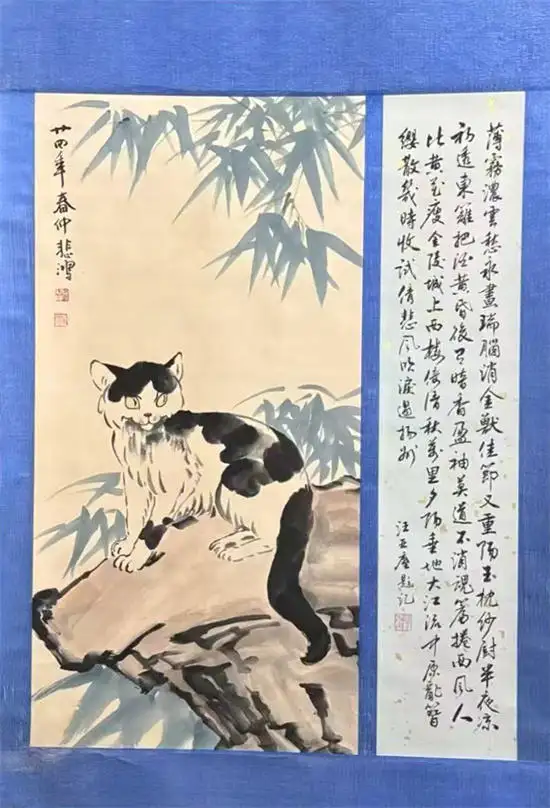 薄霧濃雲愁永晝瑞腦消金獸佳節又重陽玉枕紗廚半夜涼
初透東籬把酒黃昏後有暗香盈袖莫道不消魂簾捲西風人
比黃花瘦金陵城上西樓倚清秋萬里夕陽垂地大江流中原亂簪
纓散幾時收試倩悲風吹淚過揚州
汪亞塵題記
廿四年春仲悲鴻